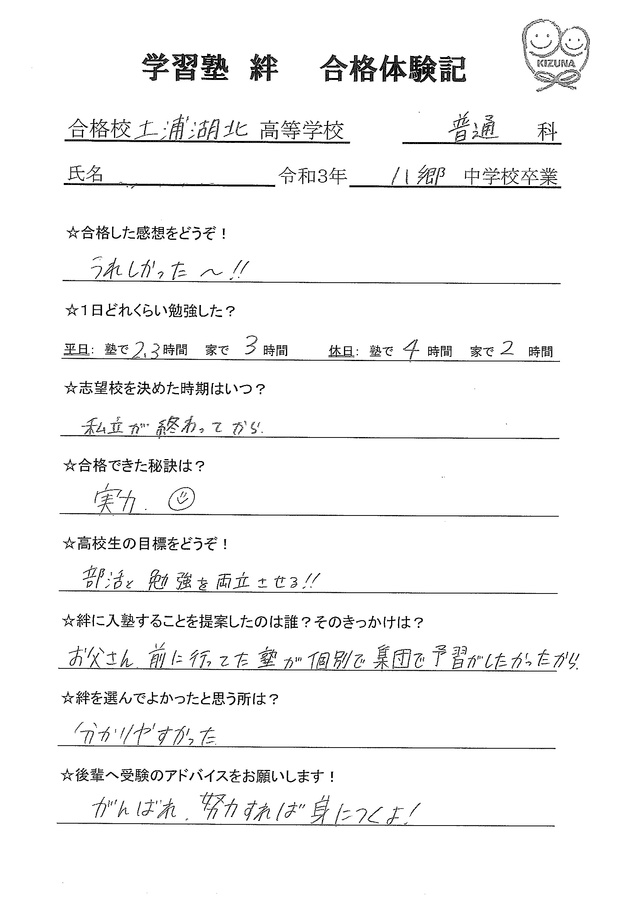 学習塾 絆 合格体験記
KIZUNA
合格校 土浦湖北 高等学校 普通 科
氏名 令和3年 八郷 中学校卒業
☆合格した感想をどうぞ！
うれしかった～!!
☆１日どれくらい勉強した？
平日： 塾で 2.3 時間 家で 3 時間 休日： 塾で 4 時間 家で 2 時間
☆志望校を決めた時期はいつ？
私立が終わってから.
☆合格できた秘訣は？
実力.
☆高校生の目標をどうぞ！
部活と勉強を両立させる!!
☆絆に入塾することを提案したのは誰？そのきっかけは？
お父さん 前に行ってた塾が個別で集団で予習がしたかったから.
☆絆を選んでよかったと思う所は？
分かりやすかった
☆後輩へ受験のアドバイスをお願いします！
がんばれ. 努力すれば身につくよ!